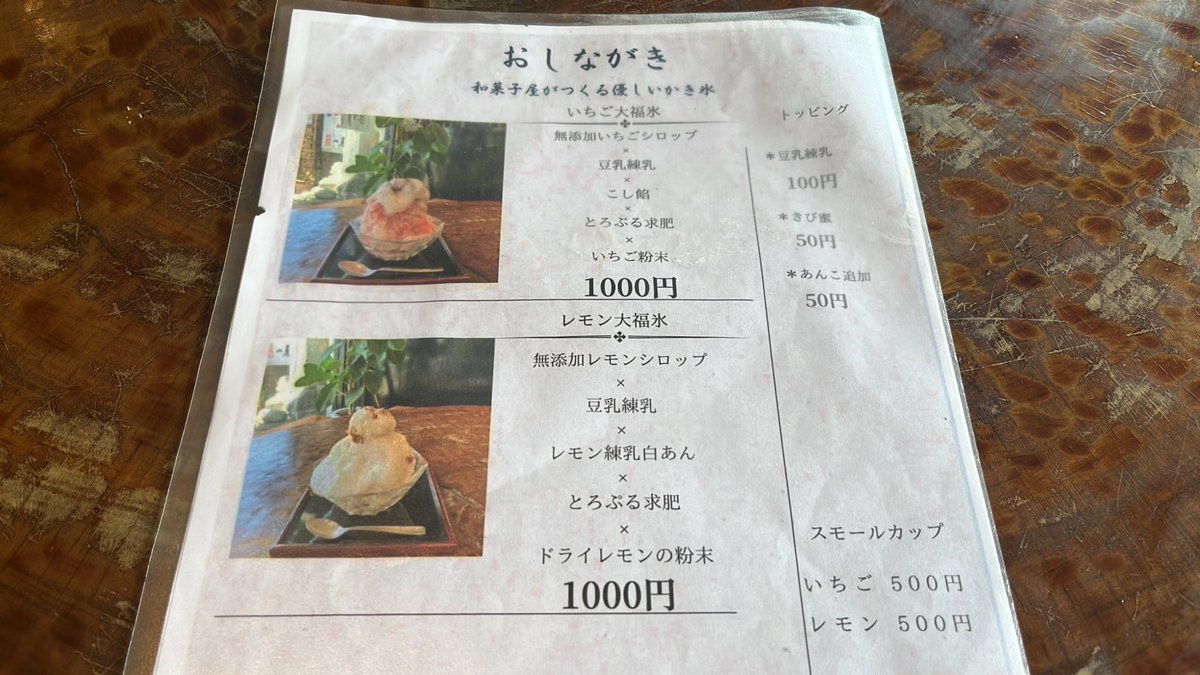 おしながき
和菓子屋がつくる優しいかき氷
いちご大福氷
無添加いちごシロップ
×
豆乳練乳
×
こし餡
×
とろぷる求肥
×
いちご粉末
1000円
レモン大福氷
無添加レモンシロップ
×
豆乳練乳
×
レモン練乳白あん
×
とろぷる求肥
×
ドライレモンの粉末
1000円
トッピング
*豆乳練乳
100円
*きび蜜
50円
*あんこ追加
50円
スモールカップ
いちご 500円
レモン 500円